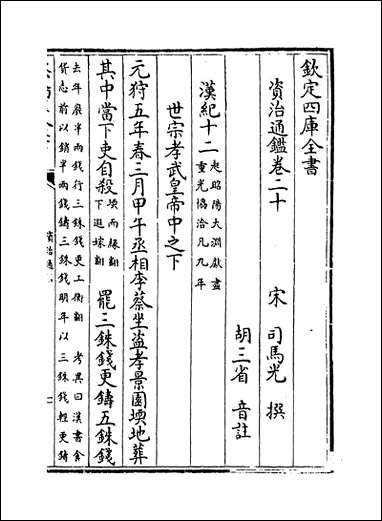 欽定四庫全書
資治通鑑卷二十 宋 司馬光 撰
胡三省 音註
漢紀十二 起昭陽大淵獻盡
重光協洽凡九年
世宗孝武皇帝中之下
元狩五年春三月甲午丞相李蔡坐盜孝景園堧地葬
其中當下吏自殺 堧而緣翻
下遐嫁翻
罷三銖錢更鑄五銖錢
去年廢半兩錢行三銖錢更工衡翻 考異曰漢書食
貨志前以銷半兩錢鑄三銖錢明年以三銖錢輕更鑄